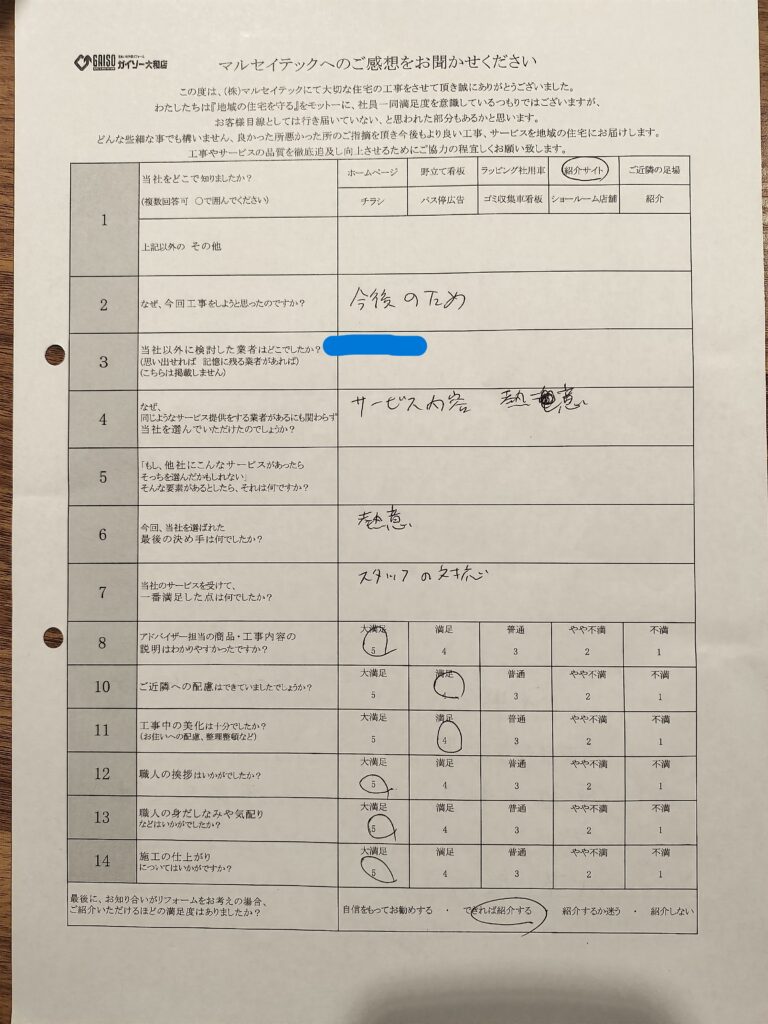 GAISO ガイソー大和店
マルセイテックへのご感想をお聞かせください
この度は、(株)マルセイテックにて大切な住宅の工事をさせて頂き誠にありがとうございました。
わたしたちは『地域の住宅を守る』をモットーに、社員一同満足度を意識しているつもりではございますが、
お客様目線としては行き届いていない、と思われた部分もあるかと思います。
どんな些細な事でも構いません、良かった所悪かった所のご指摘を頂き今後もより良い工事、サービスを地域の住宅にお届けします。
工事やサービスの品質を徹底追及し向上させるためにご協力の程宜しくお願い致します。
1
当社をどこで知りましたか?
(複数回答可 〇で囲んでください)
ホームページ 野立て看板 ラッピング社用車 紹介サイト ご近隣の足場
チラシ バス停広告 ゴミ収集車看板 ショールーム店舗 紹介
上記以外の その他
2 なぜ、今回工事をしようと思ったのですか? 今後のため
3
当社以外に検討した業者はどこでしたか?
(思い出せれば 記憶に残る業者があれば)
(こちらは掲載しません)
4
なぜ、
同じようなサービス提供をする業者があるにも関わらず
当社を選んでいただけたのでしょうか?
サービス内容 熱意
5
「もし、他社にこんなサービスがあったら
そっちを選んだかもしれない」
そんな要素があるとしたら、それは何ですか?
6
今回、当社を選ばれた
最後の決め手は何でしたか?
熱意
7
当社のサービスを受けて、
一番満足した点は何でしたか?
スタッフの対応
8
アドバイザー担当の商品・工事内容の
説明はわかりやすかったですか?
大満足 満足 普通 やや不満 不満
5 4 3 2 1
10 ご近隣への配慮はできていましたでしょうか?
大満足 満足 普通 やや不満 不満
5 4 3 2 1
11
工事中の美化は十分でしたか?
(お住いへの配慮、整理整頓など)
大満足 満足 普通 やや不満 不満
5 4 3 2 1
12 職人の挨拶はいかがでしたか?
大満足 満足 普通 やや不満 不満
5 4 3 2 1
13
職人の身だしなみや気配り
などはいかがでしたか?
大満足 満足 普通 やや不満 不満
5 4 3 2 1
14
施工の仕上がり
についてはいかがですか?
大満足 満足 普通 やや不満 不満
5 4 3 2 1
最後に、お知り合いがリフォームをお考えの場合、
ご紹介いただけるほどの満足度はありましたか?
自信をもってお勧めする ・ できれば紹介する ・ 紹介するか迷う ・ 紹介しない